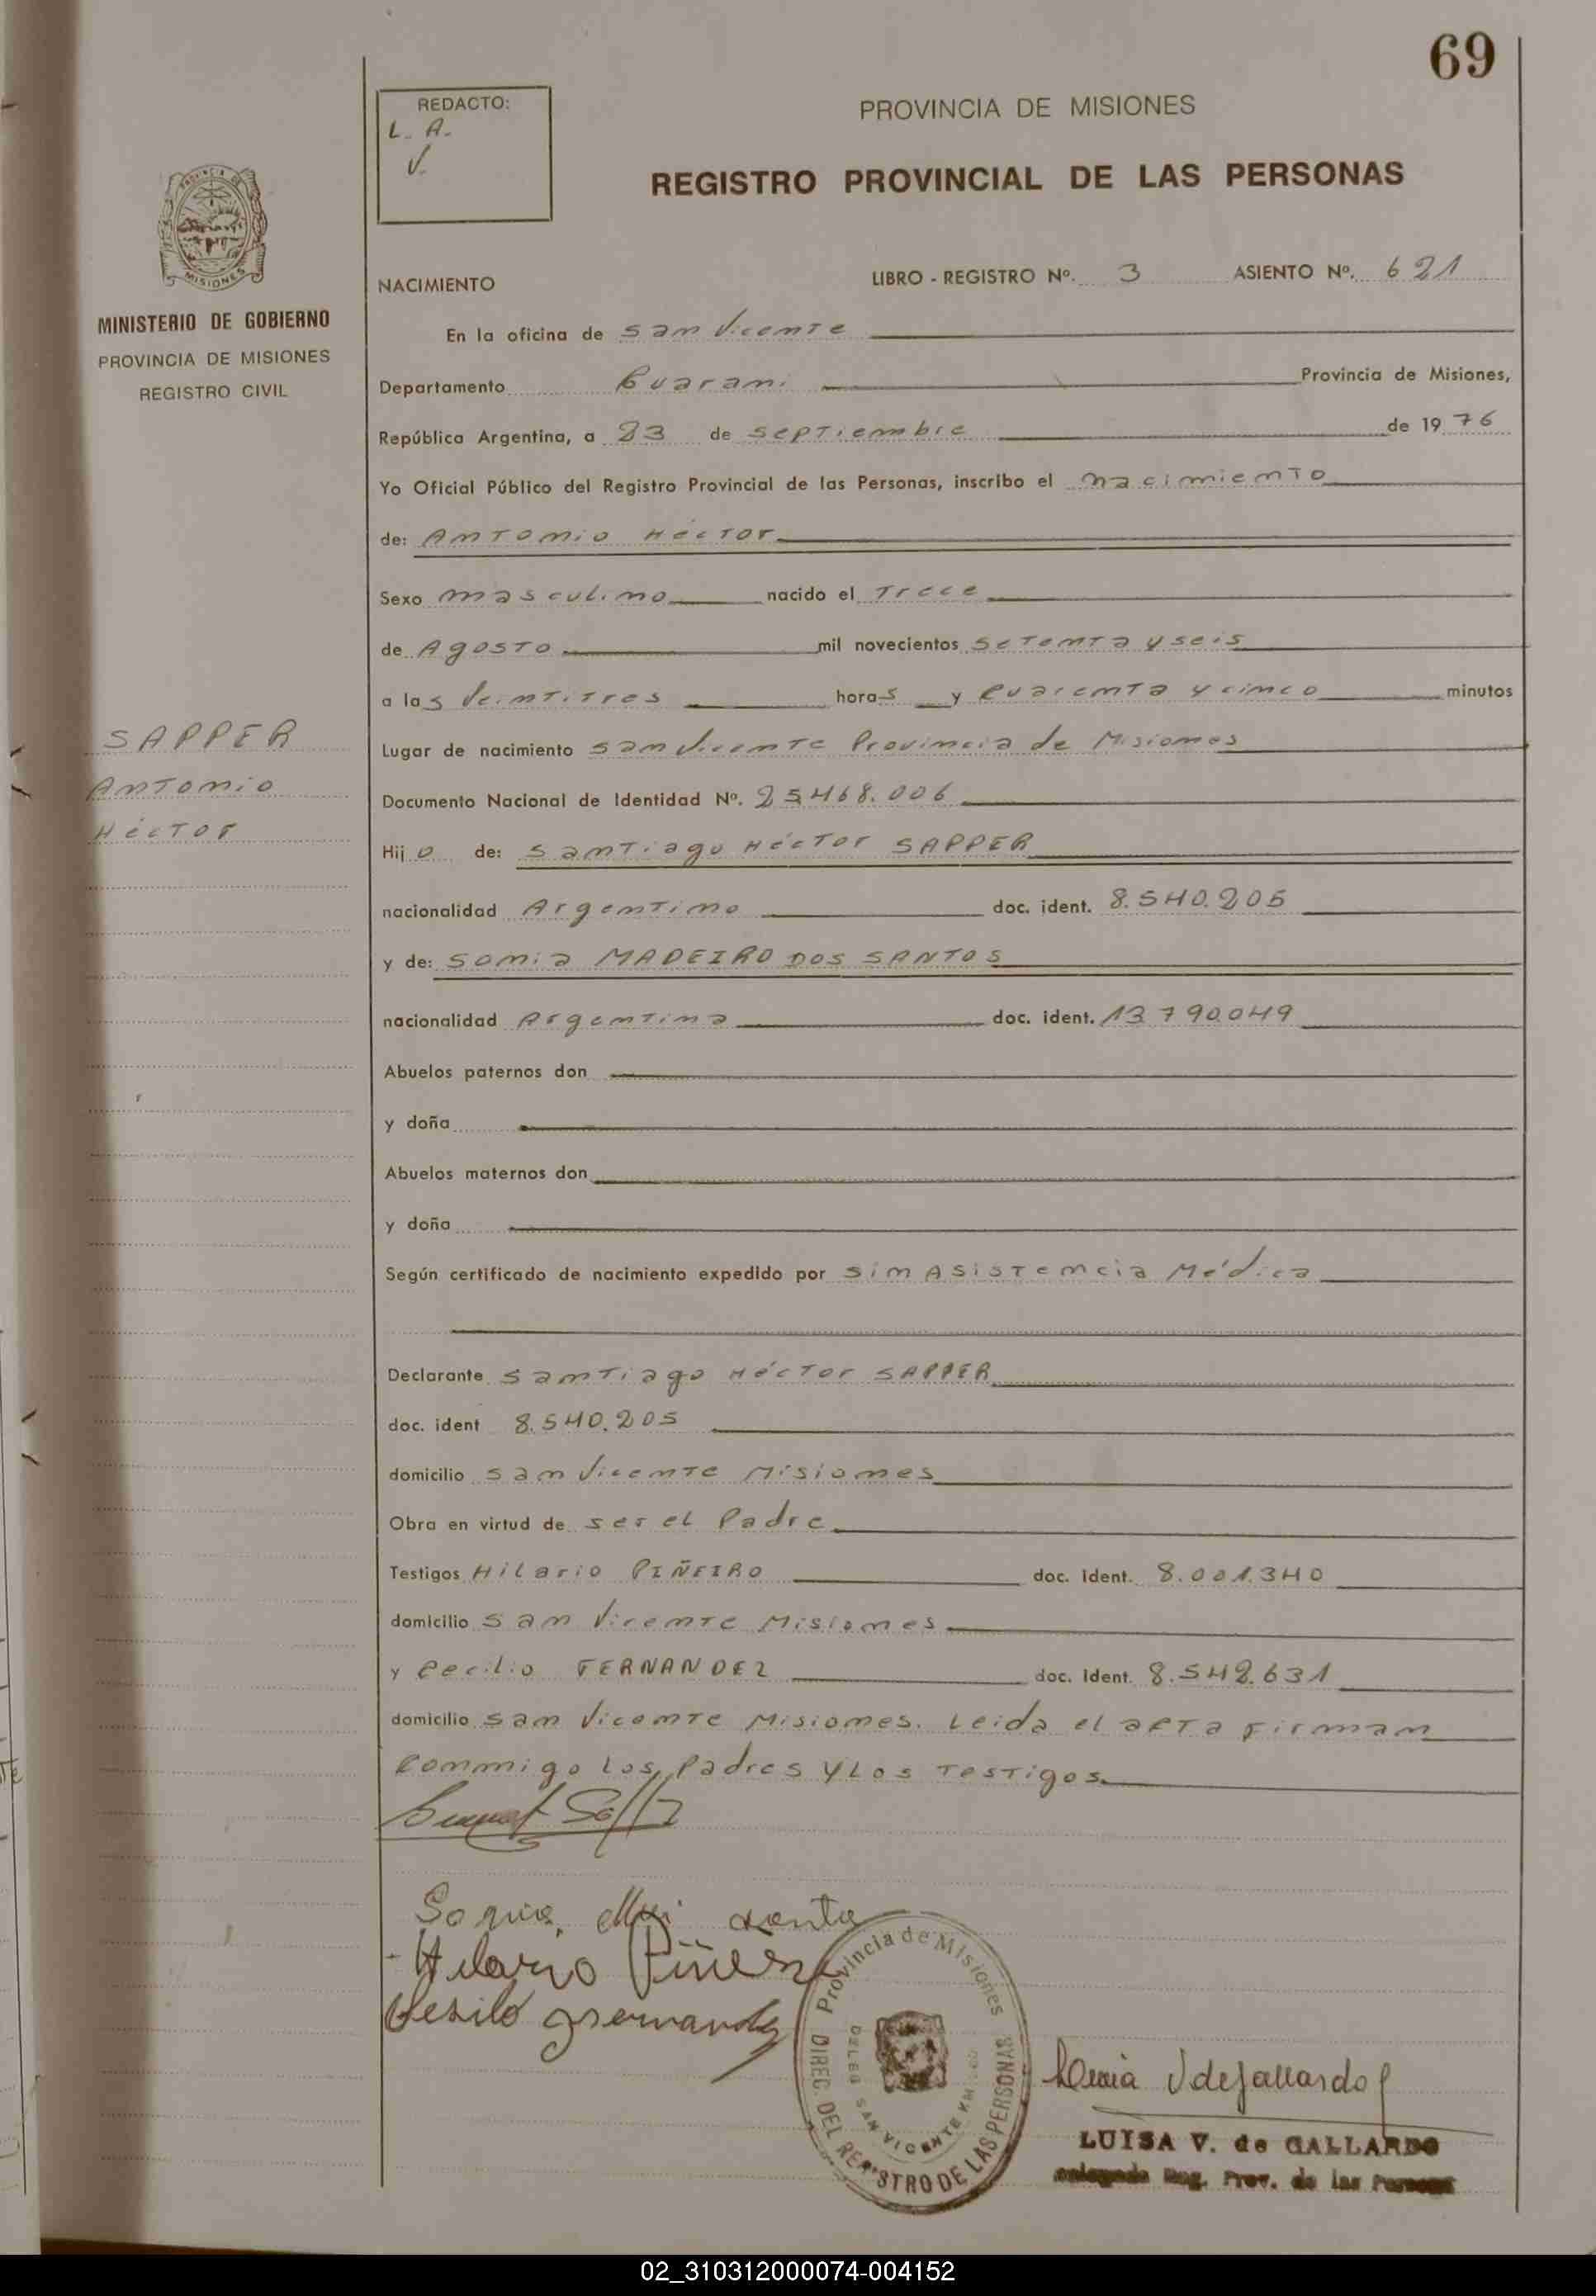 69
REDACTO:
L. A.
V.
PROVINCIA DE MISIONES
REGISTRO PROVINCIAL DE LAS PERSONAS
MISIONES
MINISTERIO DE GOBIERNO
PROVINCIA DE MISIONES
REGISTRO CIVIL
NACIMIENTO LIBRO - REGISTRO Nº. 3 ASIENTO Nº. 621
En la oficina de San Vicente
Departamento Guarani Provincia de Misiones,
República Argentina, a 23 de septiembre de 1976
Yo Oficial Público del Registro Provincial de las Personas, inscribo el nacimiento
de: Antonio Héctor
Sexo masculino nacido el Trece
de Agosto mil novecientos setenta y seis
a las Veintitres horas y cuarenta y cinco minutos
SAPPER
Antonio
Héctor
Lugar de nacimiento San Vicente Provincia de Misiones
Documento Nacional de Identidad Nº. 25.468.006
Hijo de: Santiago Héctor SAPPER
nacionalidad Argentino doc. ident. 8.540.205
y de: Sonia MADEIRO DOS SANTOS
nacionalidad Argentina doc. ident. 13.790.049
Abuelos paternos don
y doña
Abuelos maternos don
y doña
Según certificado de nacimiento expedido por sin Asistencia Médica
Declarante Santiago Héctor SAPPER
doc. ident 8.540.205
domicilio San Vicente Misiones
Obra en virtud de ser el Padre
Testigos Hilario PIÑEIRO doc. ident. 8.001.340
domicilio San Vicente Misiones
y Cecilio FERNANDEZ doc. ident. 8.542.631
domicilio San Vicente Misiones. Leida el acta firman
conmigo los Padres y los Testigos.
Hilario
Provincia de Misiones
DIREC DEL REGISTRO DE LAS PERSONAS
DELEG SAN VICENTE KM.
LUISA V. de GALLARDO
Reg. Prov. de las
02_310312000074-004152